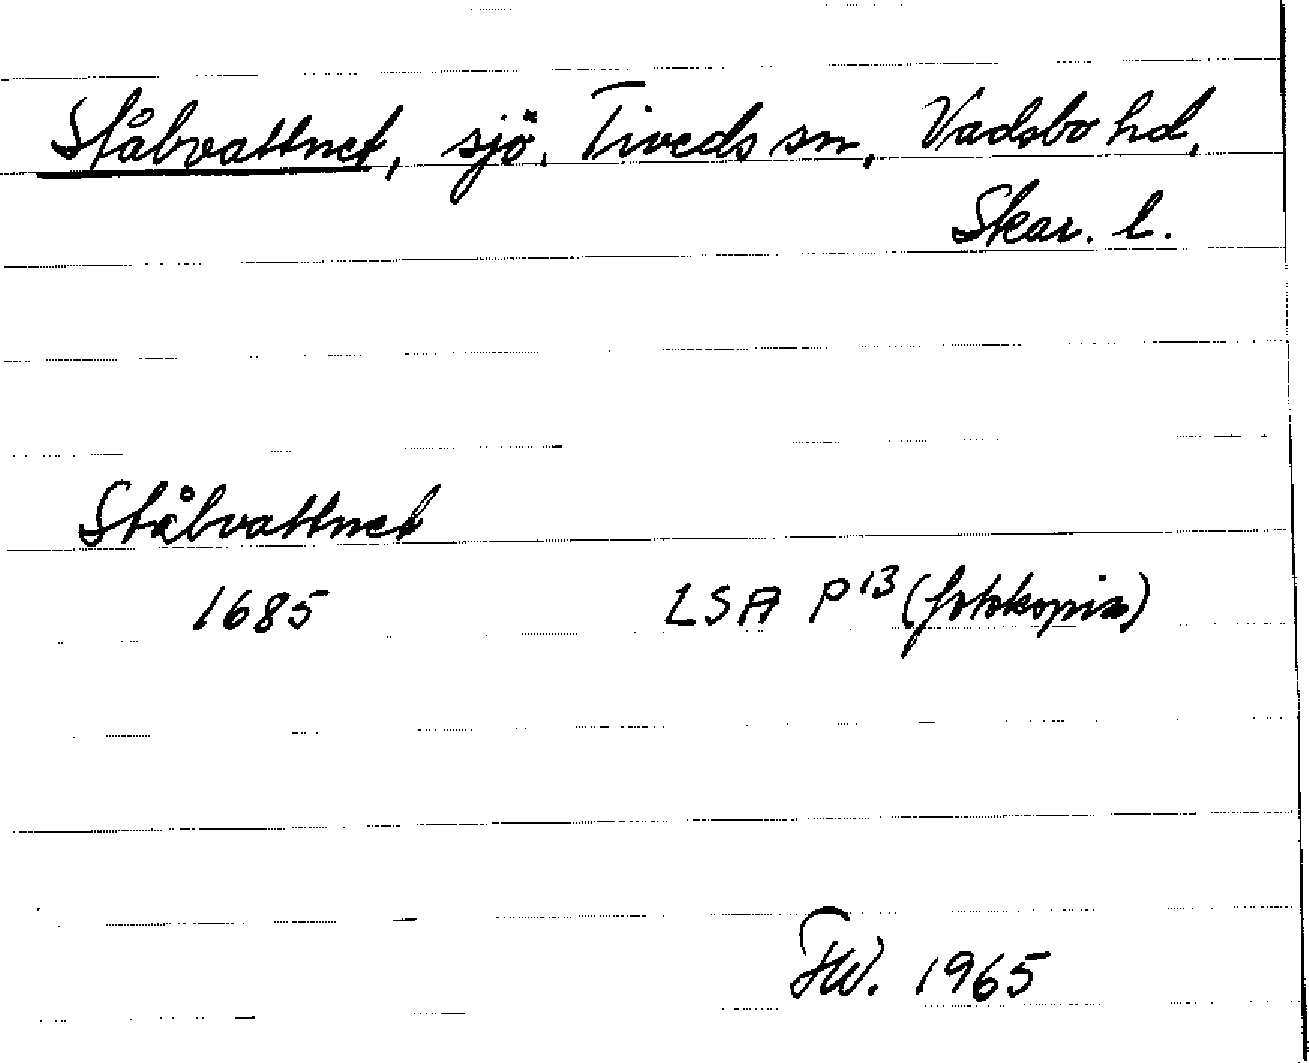 Stålvattnet, sjö, Tiveds sn, Vadsbo hd,
Skar. l.
Stålvattnet
1685 LSA P13 (fotokopia)
FW. 1965